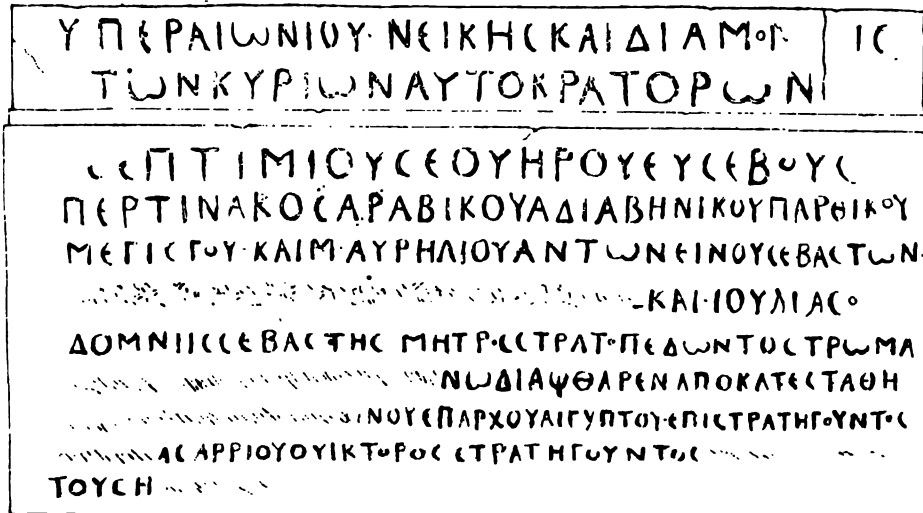 ΥΠΕΡΑΙωΝΙΟΥ·ΝΕΙΚΗϹΚΑΙΔΙΑΜΟΓ ΙϹ
ΤωΝΚΥΡΙωΝΑΥΤΟΚΡΑΤΟΡωΝ
ϹΕΠΤΙΜΙΟΥϹΕΟΥΗΡΟΥΕΥϹΕΒΟΥϹ
ΠΕΡΤΙΝΑΚΟϹΑΡΑΒΙΚΟΥΑΔΙΑΒΗΝΙΚΟΥΠΑΡΘΙΚΟΥ
ΜΕΓΙϹΤΟΥ·ΚΑΙΜ·ΑΥΡΗΛΙΟΥΑΝΤωΝΕΙΝΟΥϹΕΒΑϹΤωΝ·
ΚΑΙ·ΙΟΥΛΙΑϹΟ
ΔΟΜΝΙΙϹϹΕΒΑϹΤΗϹ ΜΗΤΡΟϹϹΤΡΑΤΟΠΕΔωΝΤΟϹΤΡωΜΑ
ΝωΔΙΑΨΘΑΡΕΝΑΠΟΚΑΤΕϹΤΑΘΗ
ΙΝΟΥΕΠΑΡΧΟΥΑΙΓΥΠΤΟΥ·ΕΠΙϹΤΡΑΤΗΓΟΥΝΤΟϹ
ΑϹΑΡΡΙΟΥΟΥΙΚΤΟΡΟϹ ϹΤΡΑΤΗΓΟΥΝΤΟϹ
ΤΟΥϹΗ